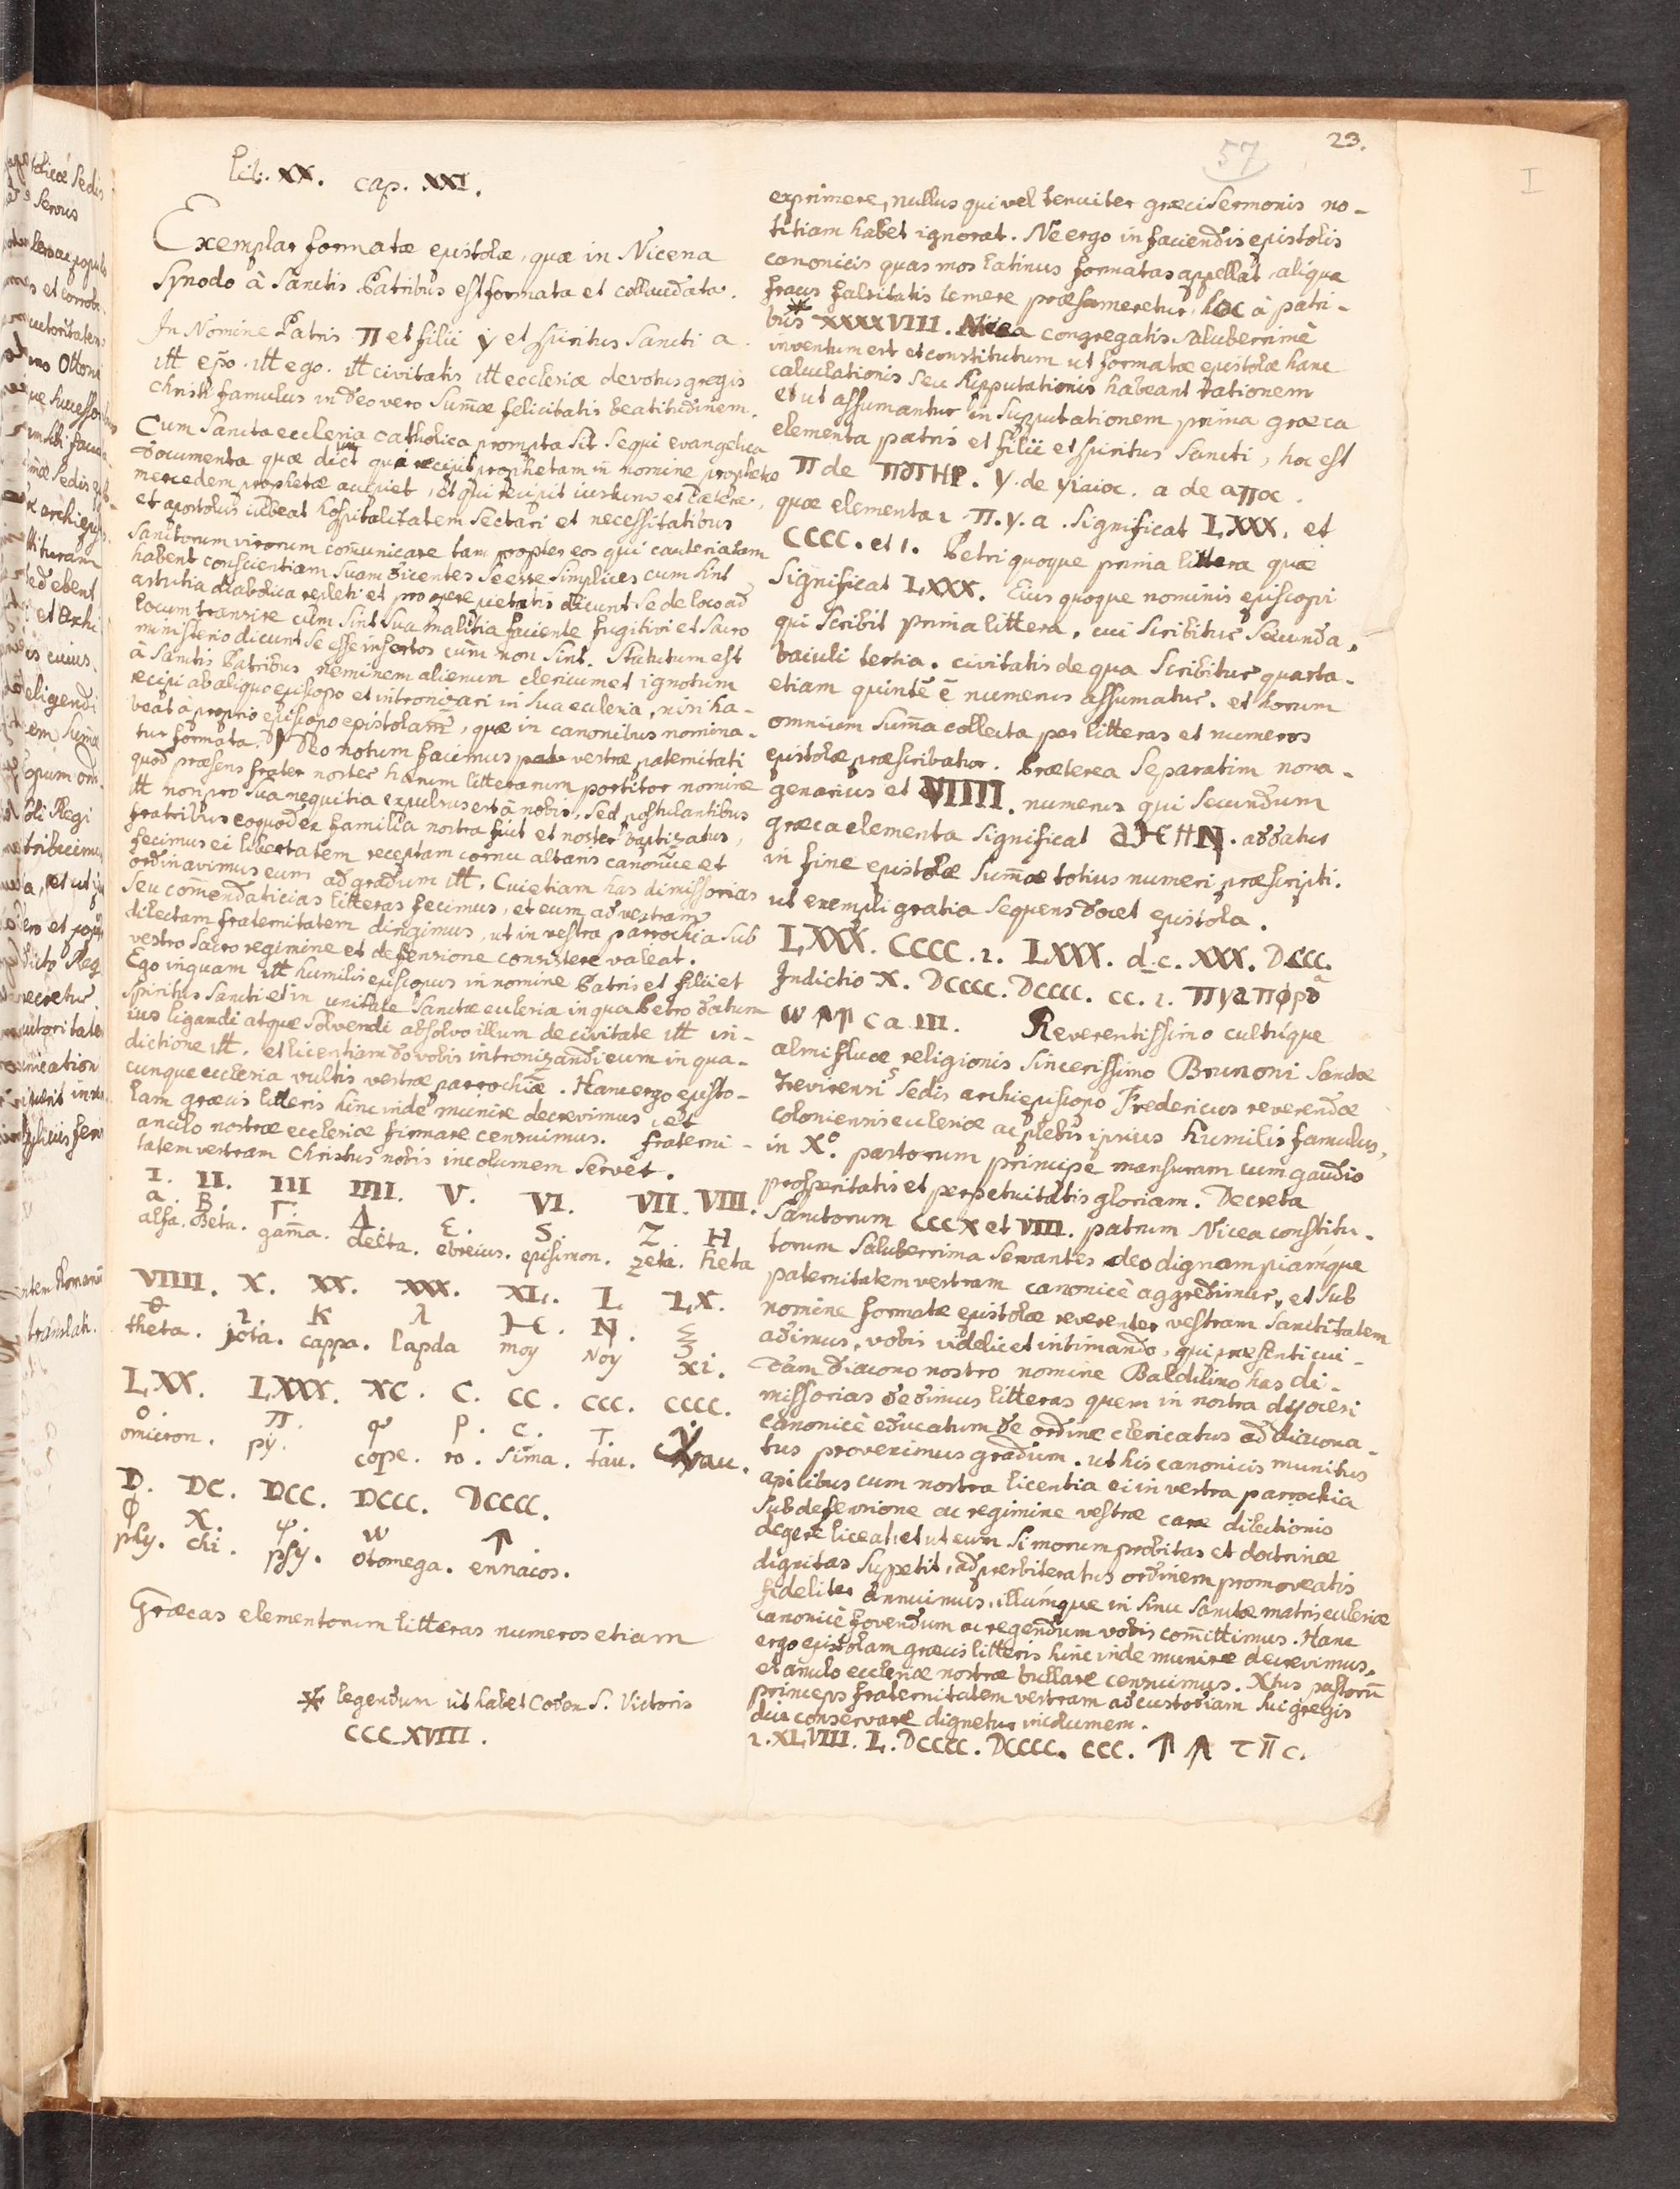 23.
57
I
lib. XX. cap. XXI.
Exemplar formatæ epistolæ, quæ in Nicena
Synodo à Sanctis Patribus est formata et collaudata.
In Nomine Patris π et filii y et spiritus Sancti a.
itt epo. itt ego. itt civitatis itt ecclesiæ devotus gregis
Christi famulus in deo vero Sumæ felicitatis beatitudinem.
Cum Sancta ecclesia catholica prompta sit sequi evangelica
documenta quæ dicit qui recipit prophetam in nomine prophetæ
mercedem prophetæ accipiet, et qui recipit iustum et cætera,
et apostolus iubeat hospitalitatem sectari et necessitatibus
Sanctorum virorum comunicare tam propter eos qui cauteriatam
habent conscientiam suam dicentes se esse simplices cum sint
astutia diabolica repleti et pro opere pietatis dicunt se de loco ad
locum transire cum sint sua malitia faciente fugitivi et sacro
ministerio dicunt se esse infertos cum non sint. Statutum est
à Sanctis Patribus neminem alienum clericum et ignotum
recipi ab aliquo episcopo et intronizari in sua ecclesia, nisi ha-
beat a proprio episcopo epistolam, quæ in canonibus nomina-
tur formata. Deo notum facimus vestræ paternitati
quod præsens frater noster harum litterarum portitor nomine
itt non pro sua nequitia expulsus est à nobis, sed postulantibus
fratribus eoquod ex familia nostra fuit et noster baptizatus,
fecimus ei libertatem receptam cornu altaris canonice et
ordinavimus eum ad gradum itt. Cui etiam has dimissorias
seu comendaticias litteras fecimus, et eum ad vestram
dilectam fraternitatem dirigimus, ut in vestra parrochia sub
vestro sacro regimine et defensione consistere valeat.
Ego inquam itt humilis episcopus in nomine Patris et filii et
Spiritus Sancti et in unitate Sanctæ ecclesiæ in qua Petro datum
ius ligandi atque solvendi absolvo illum de civitate itt in-
dictione itt. et licentiam do vobis intronizandi eum in qua-
cunque ecclesia vultis vestræ parrochiæ. Hanc ergo episto-
lam græcis litteris hinc inde munire decrevimus, et
anulo nostræ ecclesiæ firmare censuimus. fraterni-
tatem vestram Christus nobis incolumem servet.
I. II. III IIII. V. VI. VII. VIII.
a. B. Γ. Δ. ε. S. Z. H
alfa. beta. gama. delta. ebreius. episimon. zeta. heta
VIIII. X. XX. XXX. XL. L LX.
θ ι. K λ. N. ξ
theta. jota. cappa. lapda moy Noy xi.
LXX. LXXX. XC. C. CC. CCC. CCCC.
o. π. φ p. c. τ. y
omicron. py. cope. ro. sima. tau.
D. DC. DCC. DCCC. DCCCC.
ϕ X. ψ. w ↑
phy. chi. psy. otomega. ennacos.
Græcas elementorum litteras numeros etiam
* legendum ut habet Codex S. Victoris
CCC XVIII.
exprimere, nullus qui vel tenuiter græci sermonis no-
titiam habet ignorat. Ne ergo in faciendis epistolis
canonicis quas mos latinus formatas appellat, aliqua
fraus falsitatis temere præsumeretur, hoc à patri-
bus * XXXXVIII. Nicea congregatis saluberrimè
inventum est et constitutum ut formatæ epistolæ hanc
calculationis seu supputationis habeant rationem
et ut assumantur in supputationem prima græca
elementa patris et filii et spiritus Sancti, hoc est
π de πατηρ. y. de yiaioc. a de aπoc.
quæ elementa ι π. y. a. significat LXXX. et
CCCC. et 1. Petri quoque prima littera quæ
significat LXXX. Eius quoque nominis episcopi
qui scribit prima littera, cui scribitur secunda,
baiuli tertia. civitatis de qua scribitur quarta.
etiam quinte ē numerus assumatur. et horum
omnium suma collecta per litteras et numeros
epistolæ præscribatur. Præterea separatim nona-
genarius et VIIII. numerus qui secundum
græca elementa significat aHHN. addatus
in fine epistolæ sumæ totius numeri præscripti.
ut exempli gratia sequens docet epistola.
LXXX. CCCC. ι. LXXX. d_c. XXX. DCCC.
Indictio X. DCCCC. DCCCC. CC. ι. πyaπϕpo
w ↑↑ c a III. Reverentissimo cultúque
almifluæ religionis sincerissimo Brunoni Sanctæ
Trevirensis sedis archiepiscopo Fredericus reverendæ
coloniensis ecclesiæ ac plebis ipsius humilis famulus,
in Xº. pastorum principe mansuram cum gaudio
prosperitatis et perpetuitatis gloriam. Decreta
Sanctorum CCC X et VIII. patrum Nicea constitu-
torum saluberrima servantes deo dignam piámque
paternitatem vestram canonicè aggredimur, et sub
nomine formatæ epistolæ reverenter vestram sanctitatem
adimus, vobis videlicet intimando, qui præsenti cui-
dam diacono nostro nomine Baldilino has di-
missorias dedimus litteras quem in nostra dyocesi
canonicè educatum de ordine clericatus ad diacona-
tus proveximus gradum. ut his canonicis munitus
apicibus cum nostra licentia ei in vestra parrochia
sub defensione ac regimine vestræ caræ dilectionis
degere liceat, et ut eum si morum probitas et doctrinæ
dignitas supetit, ad presbiteratus ordinem promoveatis
fideliter annuimus, illúmque in sinu Sanctæ matris ecclesiæ
canonicè fovendum ac regendum vobis comittimus. Hanc
ergo epistolam græcis litteris hinc inde munire decrevimus,
et anulo ecclesiæ nostræ bullare censuimus. Xtus pastorū
princeps fraternitatem vestram ad custodiam sui gregis
diu conservare dignetur incolumem.
ι. XLVIII. L. DCCCC. DCCCC. CCC. ↑ ↑ τ π c.